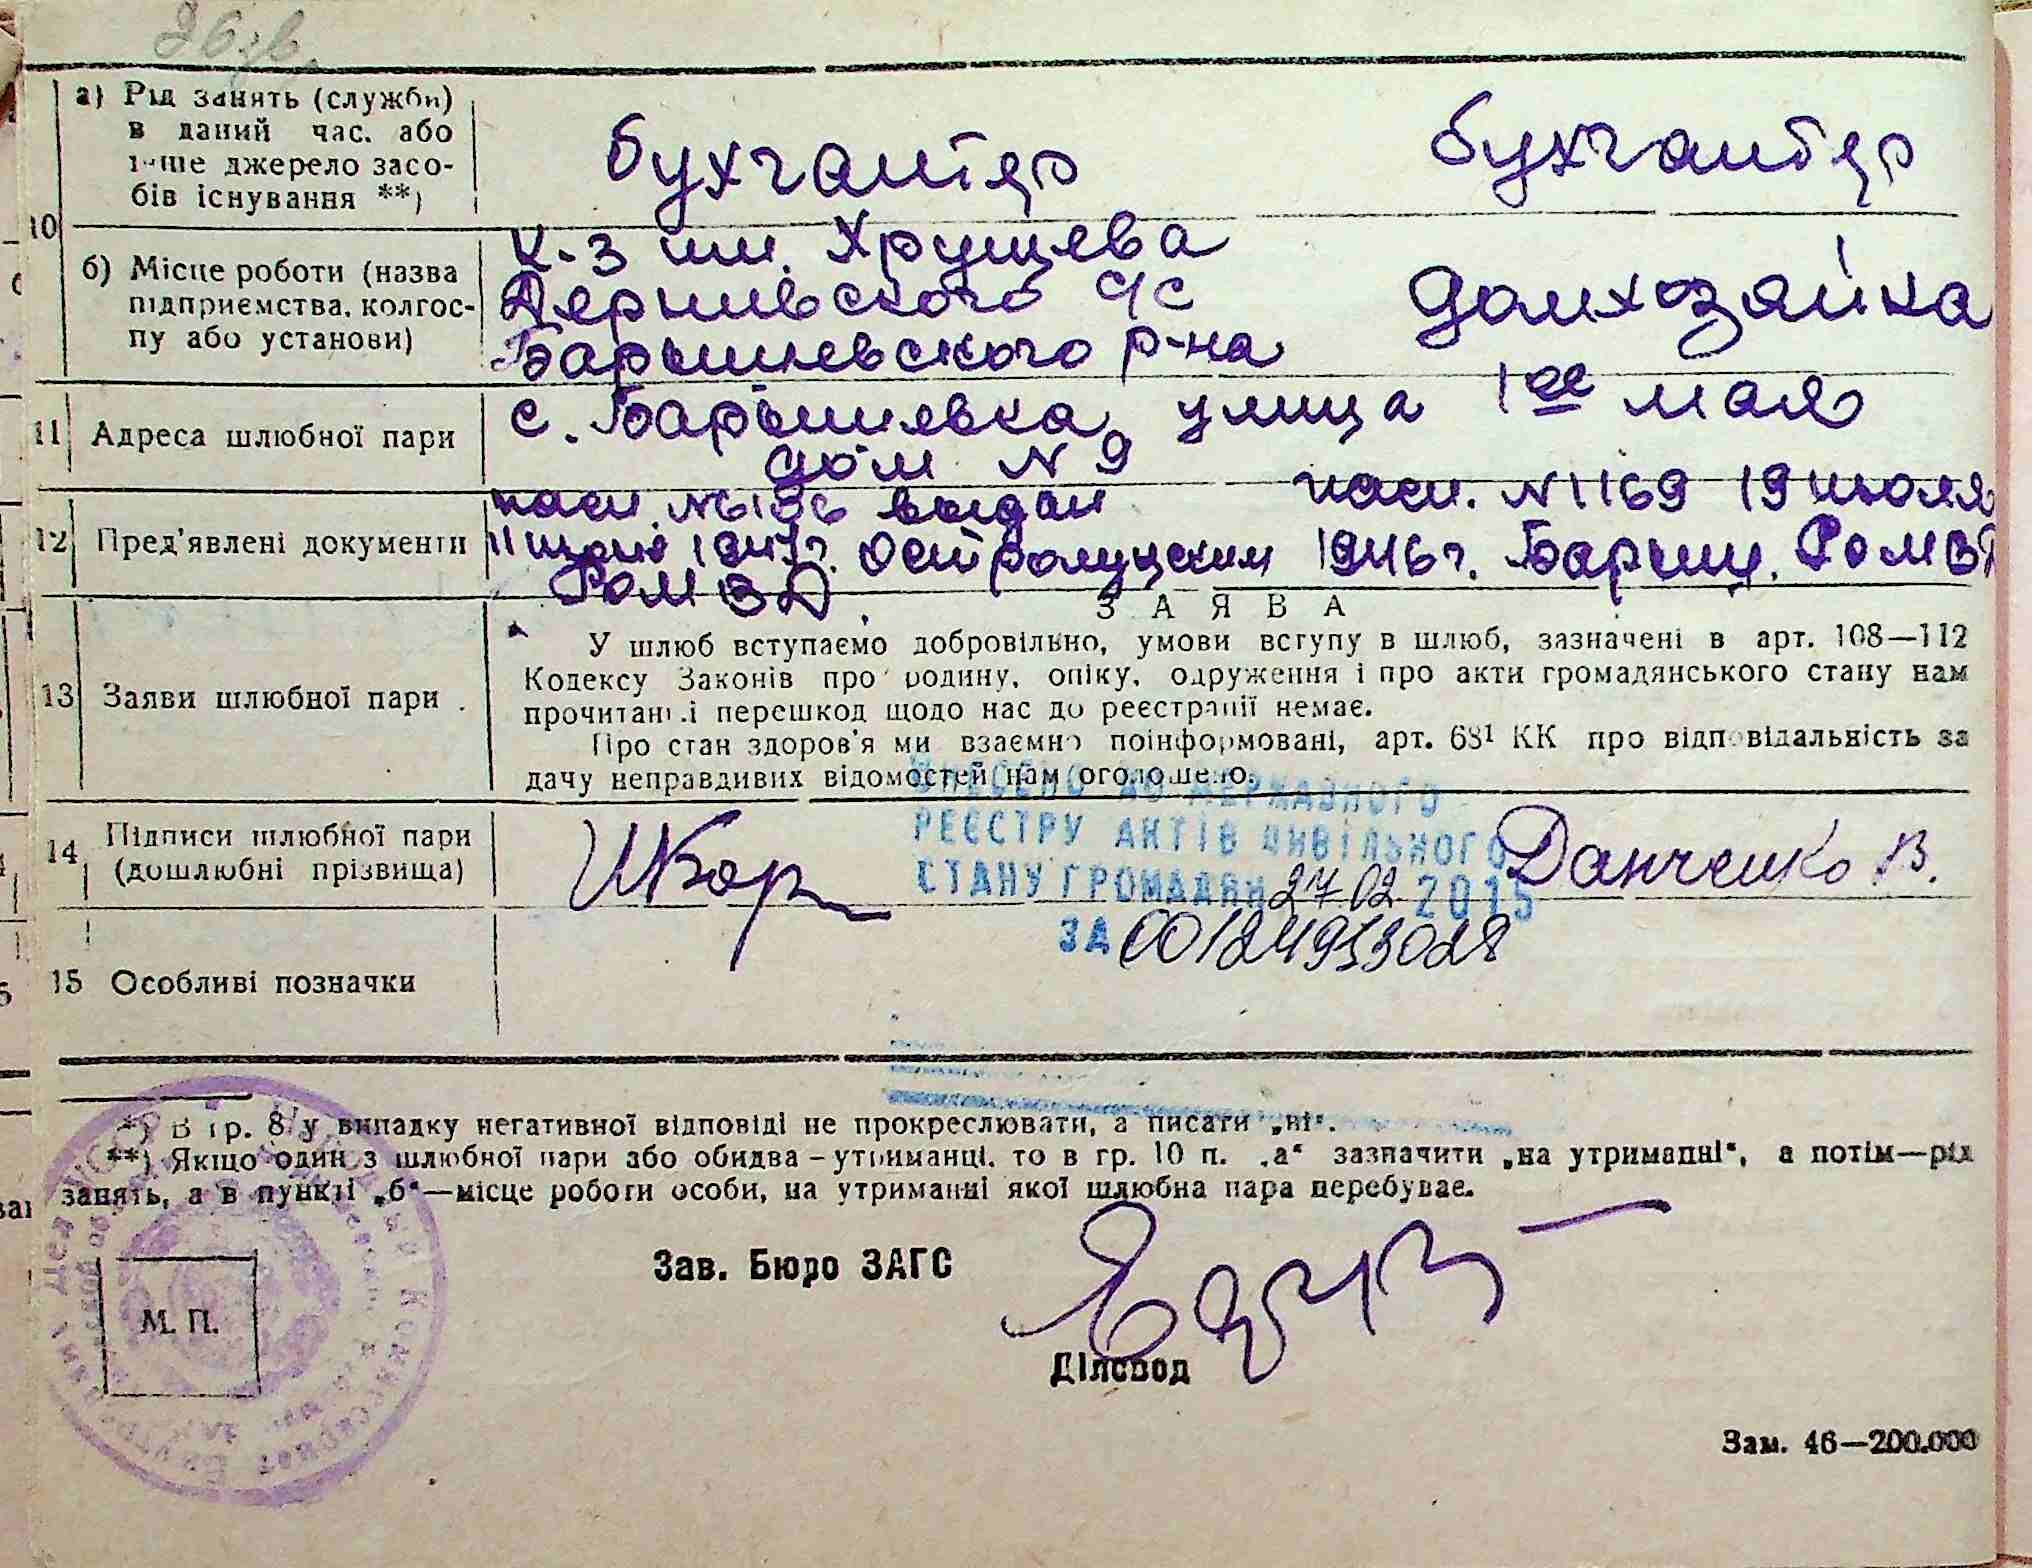 26 зв.
а) Рід занять (служби)
в даний час, або
інше джерело засо-
бів існування **)
бухгалтер
бухгалтер
10
б) Місце роботи (назва
підприємства, колгос-
пу або установи)
К-з им. Хрущева
Дернивского с/с
Барышевского р-на
домхозяйка
11 Адреса шлюбної пари
с. Барышевка, улица 1ое мая
дом N 9
12 Пред'явлені документи
пасп. N6136 выдан
11 1947г. Остролуцким
РОМВД.
пасп. N1169 19 июля
1946г. Барыш. РОМВД
ЗАЯВА
13 Заяви шлюбної пари
У шлюб вступаємо добровільно, умови вступу в шлюб, зазначені в арт. 108—112
Кодексу Законів про родину, опіку, одруження і про акти громадянського стану нам
прочитані і перешкод щодо нас до реєстрації немає.
Про стан здоров'я ми взаємно поінформовані, арт. 68¹ КК про відповідальність за
дачу неправдивих відомостей нам оголошено.
14 Підписи шлюбної пари
(дошлюбні прізвища)
Данченко В.
ВНЕСЕНО ДО ДЕРЖАВНОГО
РЕЄСТРУ АКТІВ ЦИВІЛЬНОГО
СТАНУ ГРОМАДЯН 27 02 2015
ЗА 00124953028
15 Особливі позначки
*) В гр. 8 у випадку негативної відповіді не прокреслювати, а писати „ні“.
**) Якщо один з шлюбної пари або обидва – утриманці, то в гр. 10 п. „а“ зазначити „на утриманні“, а потім—рід
занять, а в пункті „б“—місце роботи особи, на утриманні якої шлюбна пара перебуває.
Зав. Бюро ЗАГС
М. П.
Діловод
Зам. 46—200.000